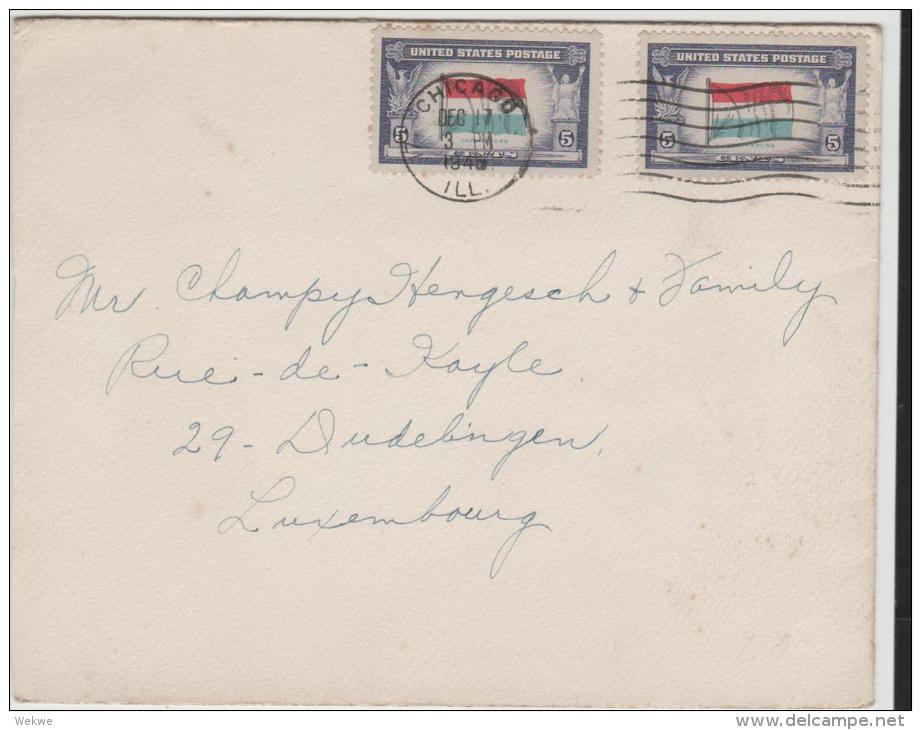 UNITED STATES POSTAGE
UNITED STATES POSTAGE
CHICAGO
DEC 17
3 PM
ILL.
5 CENTS 5
5 CENTS 5
Mr. Champy Hengesch & Family
Rue-de-Kayle
29-Dudelingen,
Luxembourg
Wekwe
www.delcampe.net